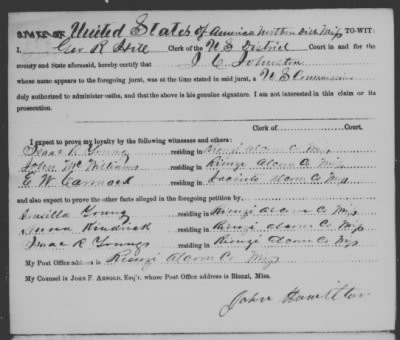 STATE OF United States of America Northern Dist Miss TO-WIT:
I, Geo R Hill Clerk of the U.S. District Court in and for the
county and State aforesaid, hereby certify that J C Johnston
whose name appears to the foregoing jurat, was at the time stated in said jurat, a U S Commissioner
duly authorized to administer oaths, and that the above is his genuine signature. I am not interested in this claim or its
prosecution.
Clerk of Court.
I expect to prove my loyalty by the following witnesses and others:
Isaac R Young residing in Rienzi Alcorn Co Miss
John McWilliams residing in Rienzi Alcorn Co Miss
E W Carmack residing in Jacinto Alcorn Co Miss
and also expect to prove the other facts alleged in the foregoing petition by
Young residing in Rienzi Alcorn Co Miss
Kendrick residing in Rienzi Alcorn Co Miss
Isaac R Young residing in Rienzi Alcorn Co Miss
My Post Office address is Rienzi Alcorn Co Miss
My Counsel is JOHN F. ARNOLD, Esq'r, whose Post Office address is Rienzi, Miss.
John Hamilton